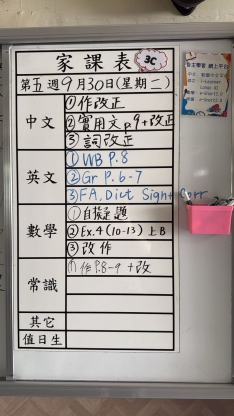 家課表 3C
第五週9月30日(星期二)
中文
①作改正
②實用文p9+改正
③詞改正
英文
①WB P.8
②Gr P.6-7
③FA, Dict Sign+Corr
數學
①自擬題
②Ex.4(10-13)上B
③改作
常識
①作P.8-9 +改
其它
值日生